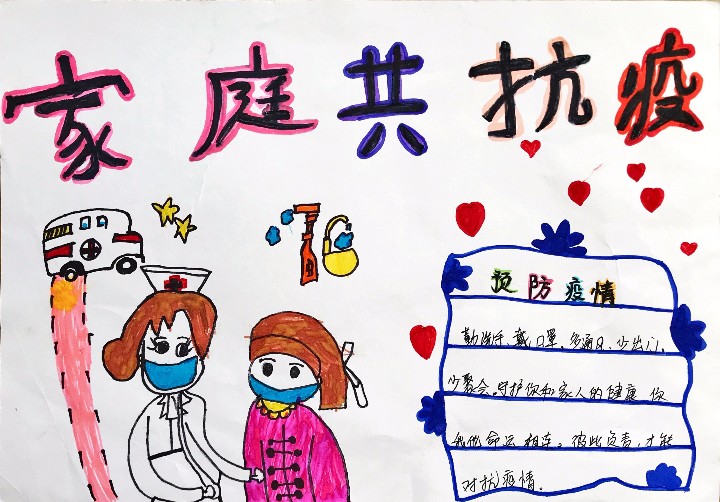 家庭共抗疫
预防疫情
勤洗手、戴口罩、多通风、少出门、
少聚会。守护你和家人的健康 你
我他命运相连。彼此负责,才能
对抗疫情.